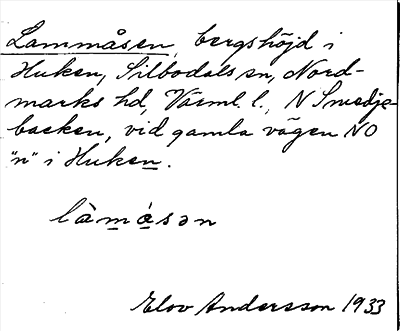 Lammåsen, bergshöjd i
Huken, Silbodals sn, Nord-
marks hd, Värml. l., N Smedje-
backen, vid gamla vägen NO
"n" i Huken.
là̀m̲å̲sən
Elov Andersson 1933